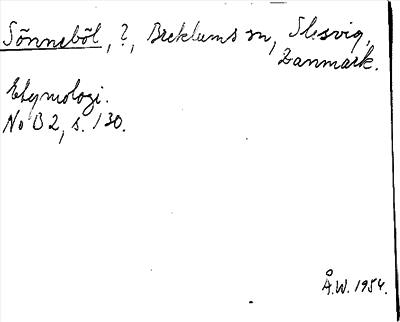 Sönneböl, ?, Breklums sn, Slesvig,
Danmark.
Etymologi.
NoB 2, s. 130.
Å.W. 1954.